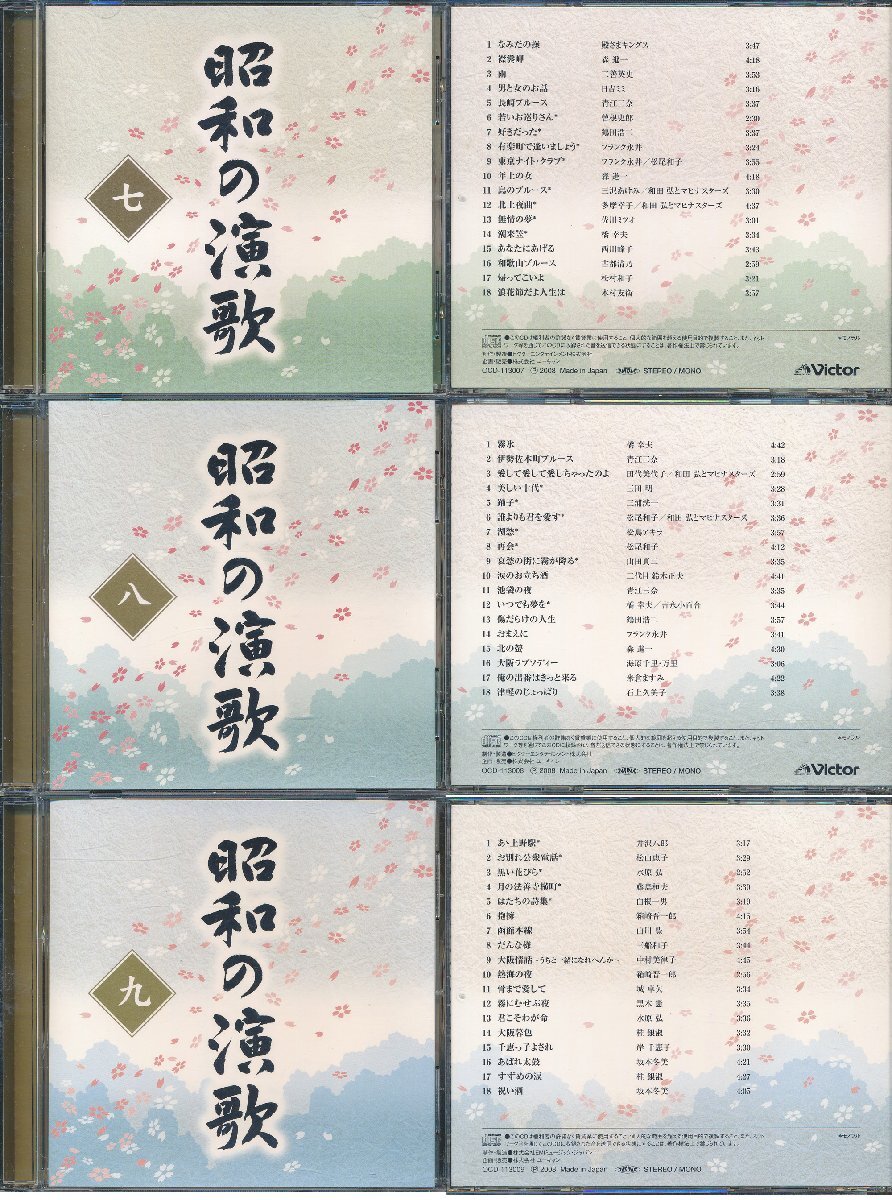 昭和の演歌
七
1 なみだの操 殿さまキングス 3:47
2 襟裳岬 森 進一 4:18
3 雨 三善英史 3:53
4 男と女のお話 日吉ミミ 3:16
5 長崎ブルース 青江三奈 3:37
6 若いお巡りさん* 曽根史郎 2:30
7 好きだった* 鶴田浩二 3:37
8 有楽町で逢いましょう* フランク永井 3:24
9 東京ナイト・クラブ* フランク永井/松尾和子 3:55
10 年上の女 森 進一 4:18
11 島のブルース* 三沢あけみ/和田 弘とマヒナスターズ 3:30
12 北上夜曲* 多摩幸子/和田 弘とマヒナスターズ 4:37
13 無情の夢* 佐川ミツオ 3:01
14 潮来笠* 橋 幸夫 3:34
15 あなたにあげる 西川峰子 3:43
16 和歌山ブルース 古都清乃 2:59
17 帰ってこいよ 松村和子 3:21
18 浪花節だよ人生は 木村友衛 3:57
*モノラル
OCD-113007 Ⓟ 2008 Made in Japan STEREO / MONO
Victor
昭和の演歌
八
1 霧氷 橋 幸夫 4:42
2 伊勢佐木町ブルース 青江三奈 3:18
3 愛して愛して愛しちゃったのよ 田代美代子/和田 弘とマヒナスターズ 2:59
4 美しい十代* 三田 明 3:28
5 踊子* 三浦洸一 3:31
6 誰よりも君を愛す* 松尾和子/和田 弘とマヒナスターズ 3:36
7 湖愁* 松島アキラ 3:57
8 再会* 松尾和子 4:12
9 哀愁の街に霧が降る* 山田真二 3:35
10 涙のお立ち酒 二代目 鈴木正夫 4:41
11 池袋の夜 青江三奈 3:35
12 いつでも夢を* 橋 幸夫/吉永小百合 3:44
13 傷だらけの人生 鶴田浩二 3:57
14 おまえに フランク永井 3:41
15 北の螢 森 進一 4:30
16 大阪ラプソディー 海原千里・万里 3:06
17 俺の出番はきっと来る 米倉ますみ 4:22
18 津軽のじょっぱり 石上久美子 3:38
*モノラル
OCD-113008 Ⓟ 2008 Made in Japan STEREO / MONO
Victor
昭和の演歌
九
1 あゝ上野駅* 井沢八郎 3:17
2 お別れ公衆電話* 松山恵子 3:29
3 黒い花びら* 水原 弘 2:52
4 月の法善寺横町* 藤島桓夫 3:39
5 はたちの詩集* 白根一男 3:19
6 抱擁 箱崎晋一郎 4:15
7 函館本線 山川 豊 3:54
8 だんな様 三船和子 3:44
9 大阪情話 〜うちと一緒になれへんか〜 中村美律子 4:45
10 熱海の夜 箱崎晋一郎 2:56
11 骨まで愛して 城 卓矢 3:34
12 霧にむせぶ夜 黒木 憲 3:35
13 君こそわが命 水原 弘 3:36
14 大阪暮色 桂 銀淑 3:32
15 千恵っ子よされ 岸 千恵子 3:30
16 あばれ太鼓 坂本冬美 4:21
17 すずめの涙 桂 銀淑 4:27
18 祝い酒 坂本冬美 4:05
*モノラル
OCD-113009 Ⓟ 2008 Made in Japan STEREO / MONO